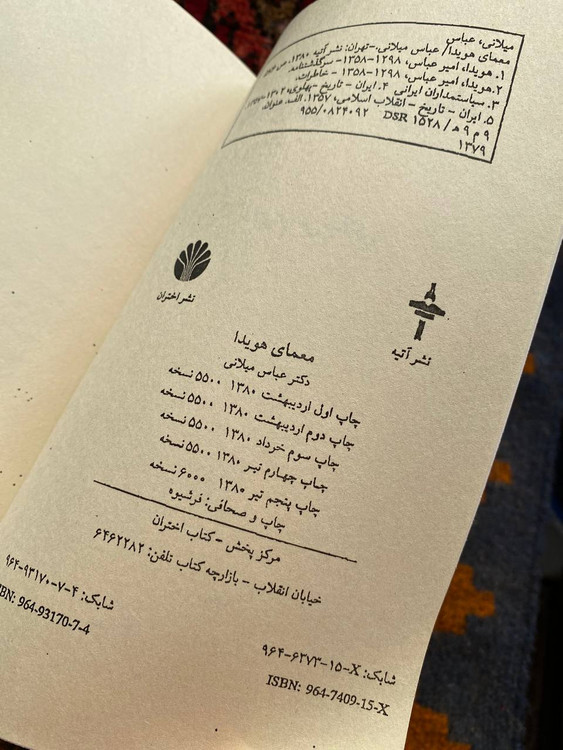 میلانی، عباس
معمای هویدا/ عباس میلانی.-تهران: نشر آتیه ۱۳۸۰. ص.
۱. هویدا، امیر عباس، ۱۲۹۸-۱۳۵۸- سرگذشتنامه.
۲.هویدا، امیر عباس، ۱۲۹۸-۱۳۵۸ - خاطرات.
۳. سیاستمداران ایرانی ۴. ایران - تاریخ - پهلوی،
۵. ایران - تاریخ - انقلاب اسلامی، ۱۳۵۷. الف. عنوان.
۹ م ۹ ه/ DSR ۱۵۲۸ ۹۵۵/۰۸۲۴۰۹۲
۱۳۷۹
نشر اختران
نشر آتیه
معمای هویدا
دکتر عباس میلانی
چاپ اول اردیبهشت ۱۳۸۰ ۵۵۰۰ نسخه
چاپ دوم اردیبهشت ۱۳۸۰ ۵۵۰۰ نسخه
چاپ سوم خرداد ۱۳۸۰ ۵۵۰۰ نسخه
چاپ چهارم تیر ۱۳۸۰ ۵۵۰۰ نسخه
چاپ پنجم تیر ۱۳۸۰ ۶۰۰۰ نسخه
چاپ و صحافی: فرشیوه
مرکز پخش - کتاب اختران
خیابان انقلاب - بازارچه کتاب تلفن: ۶۴۶۲۲۸۲
شابک: ۴-۷-۹۳۱۷۰-۹۶۴
ISBN: 964-93170-7-4
شابک: X-۱۵-۶۲۷۳-۹۶۴
ISBN: 964-7409-15-X